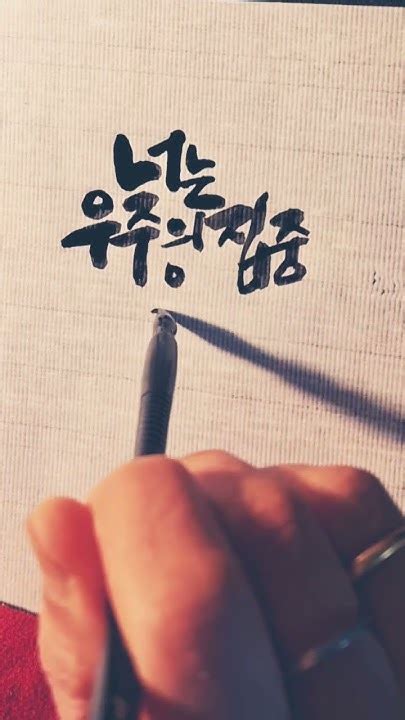 너는
우주의 집중